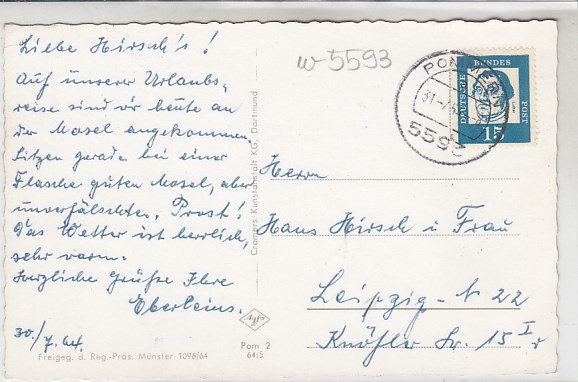 Liebe Hirsch's!
Auf unserer Urlaubs-
reise sind wir heute an
der Mosel angekommen.
Sitzen gerade bei einer
Flasche guten Mosel, aber
unverfälschten. Prost!
Das Wetter ist herrlich,
sehr warm.
Herzliche Grüße Ihre
Eberleins.
30./7.64.
Freigeg. d. Reg.-Präs. Münster 1096/64
Cramers Kunstanstalt KG, Dortmund
Agfa
Pom 2
64/5
w-5593
POMMERN
31.-7.
5593
DEUTSCHE
BUNDES
POST
15
Herrn
Hans Hirsch u Frau
Leipzig-N 22
Knöfler Str. 15 I r